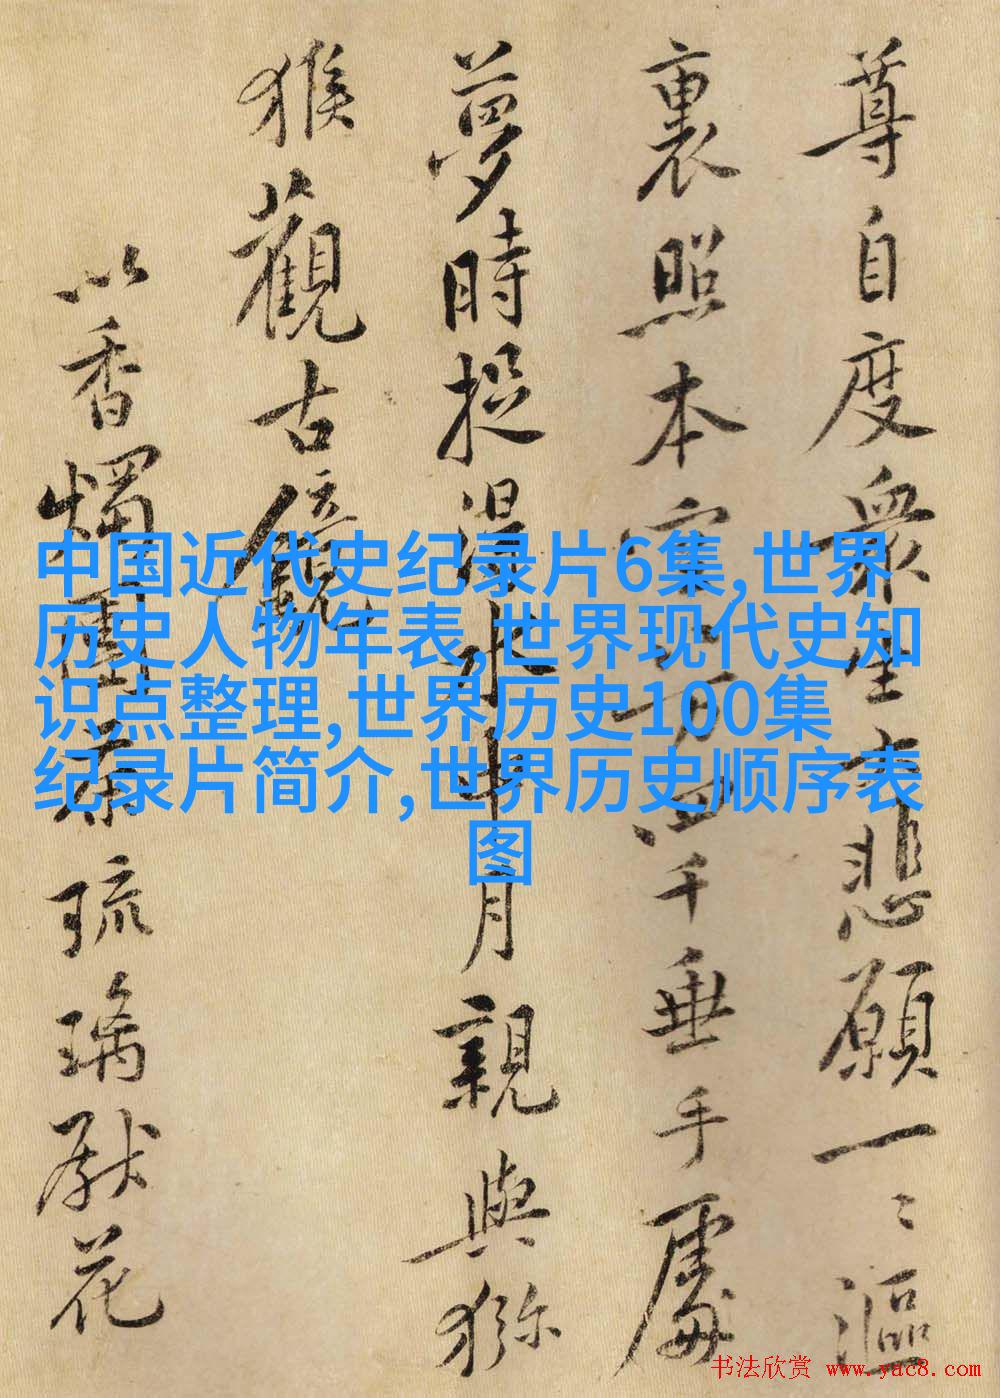 尊自度衆生大悲願一〻漚
裏照本八万四千垂手處
夢時捉得水中月親與獼
猴觀古鏡
以香燭團茶琉璃獻花
中国近代史纪录片6集,世界
历史人物年表,世界现代史知
识点整理,世界历史100集
纪录片简介,世界历史顺序表
图
书法欣赏 www.yac8.com